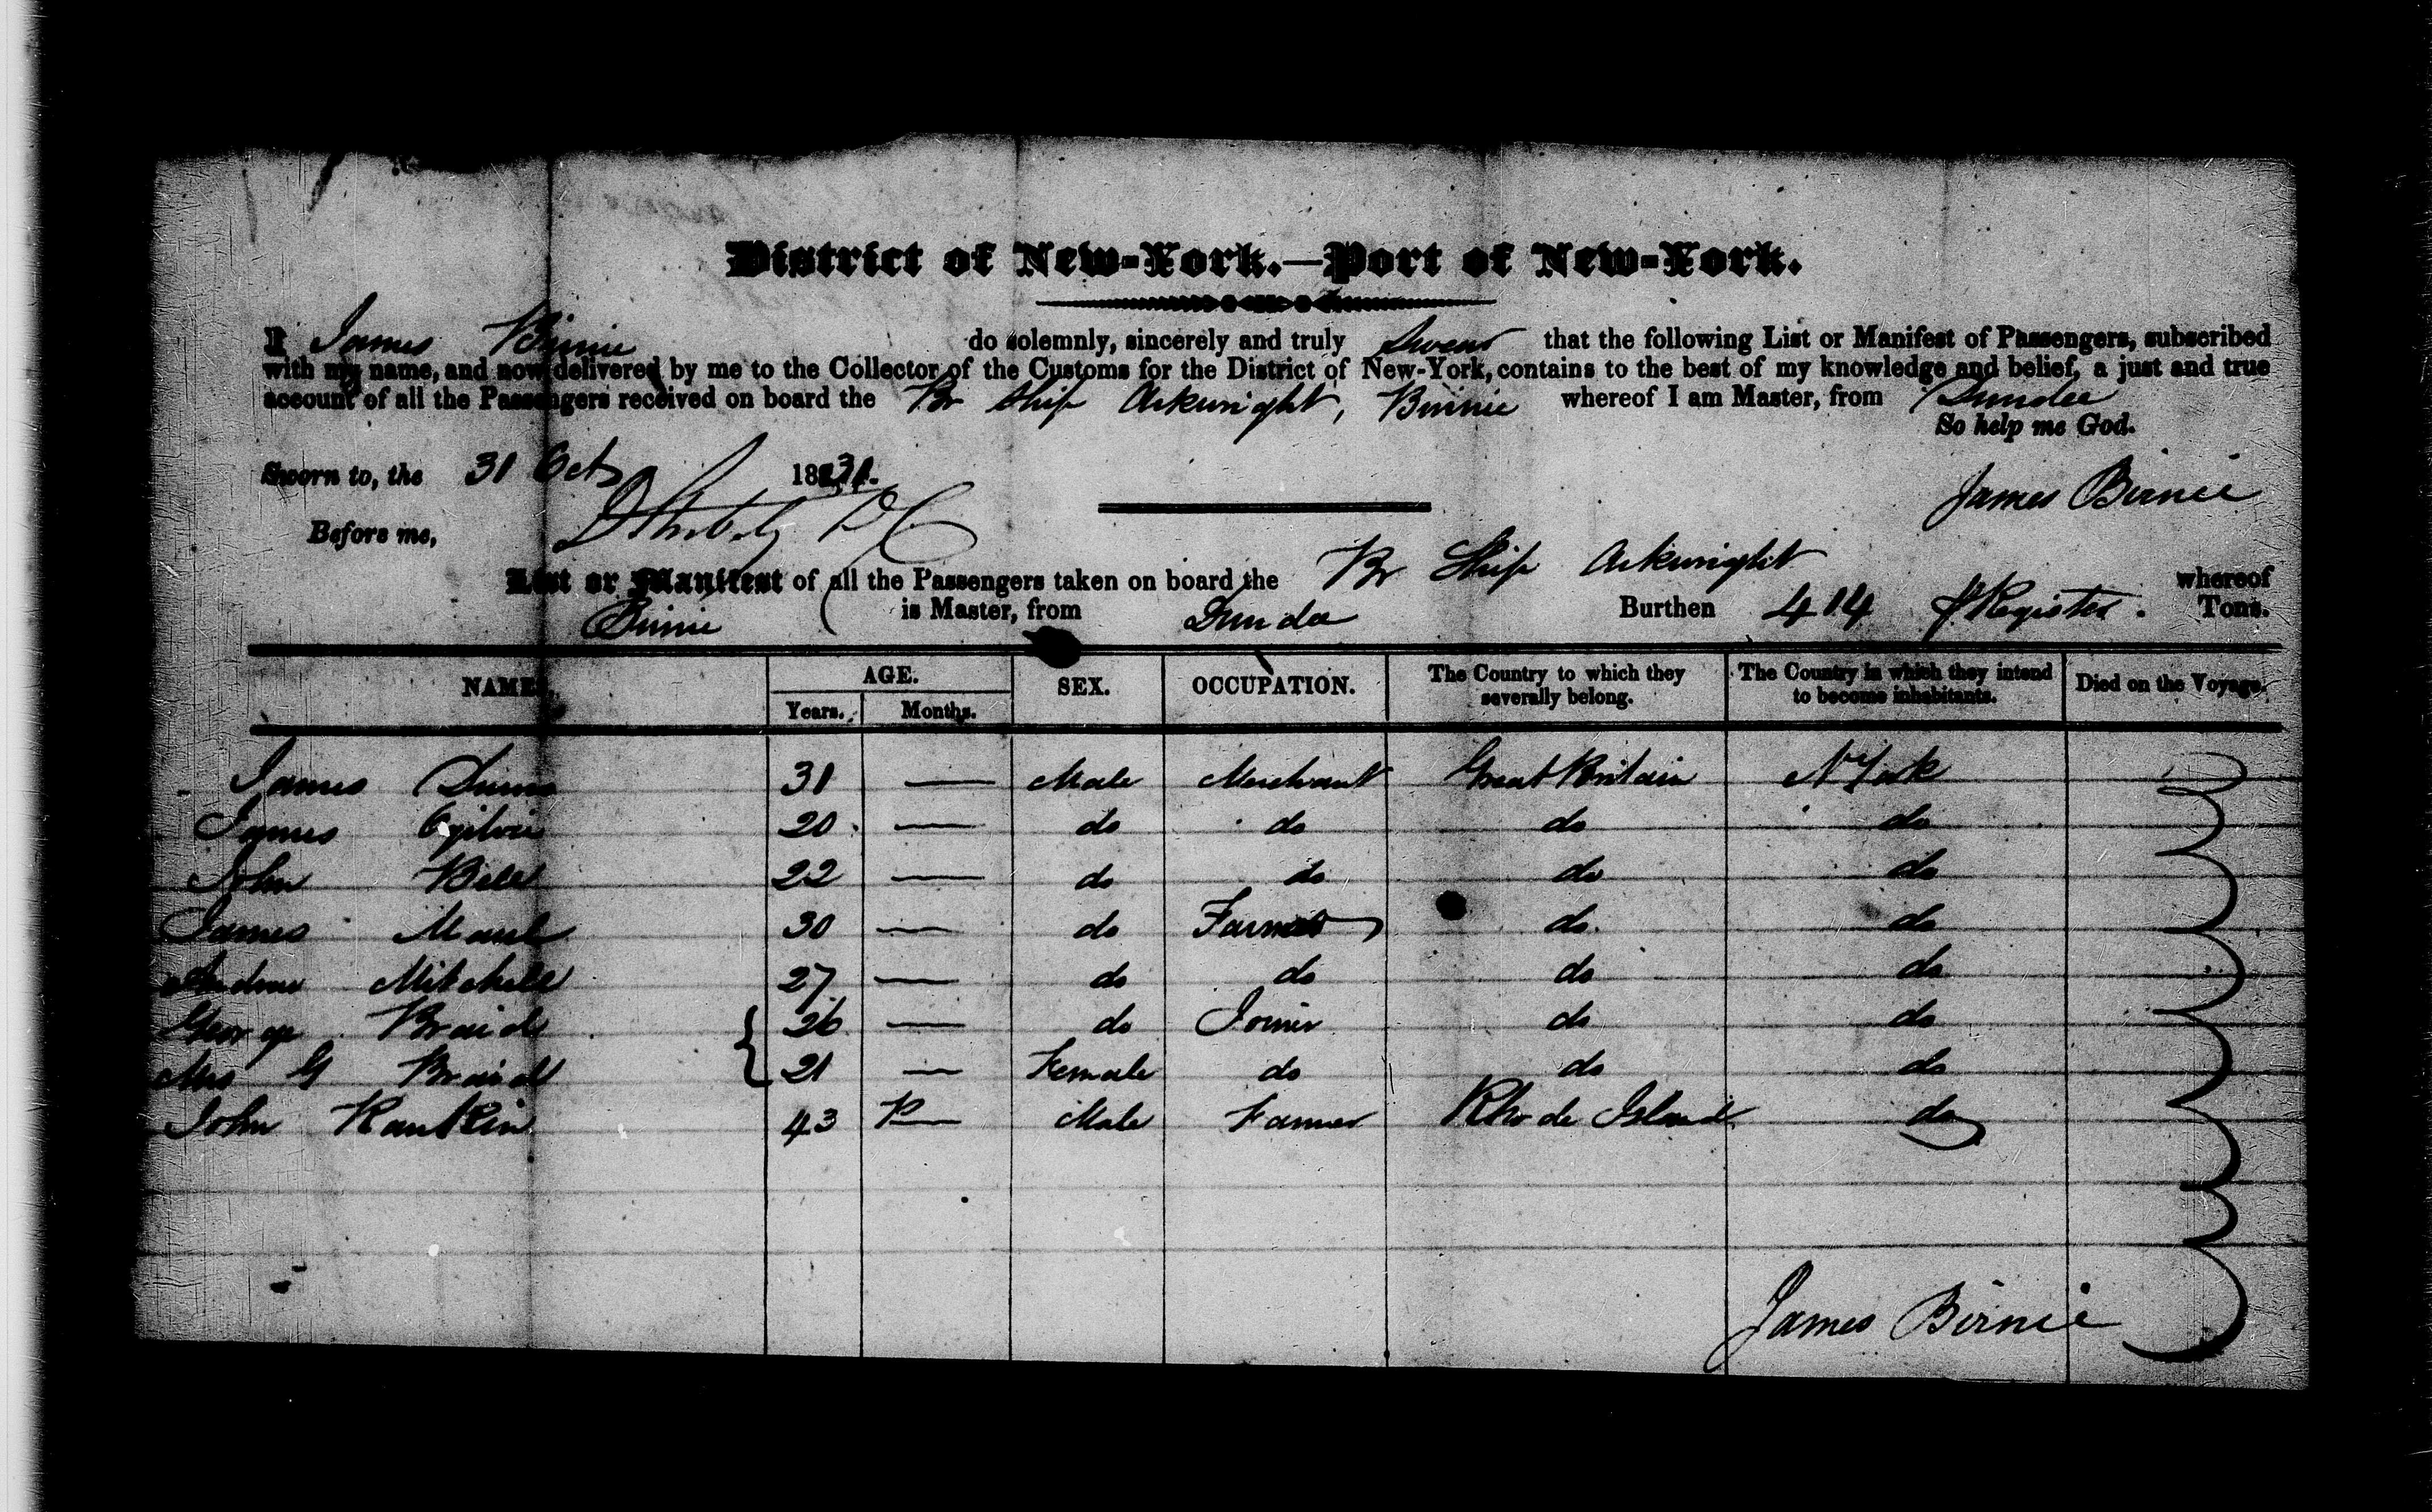 District of New-York.—Port of New-York.
I James Birnie do solemnly, sincerely and truly Swear that the following List or Manifest of Passengers, subscribed
with my name, and now delivered by me to the Collector of the Customs for the District of New-York, contains to the best of my knowledge and belief, a just and true
account of all the Passengers received on board the Br Ship Arkwright, Birnie whereof I am Master, from Dundee
So help me God.
Sworn to, the 31 Oct 1831.
James Birnie
Before me,
List or Manifest of all the Passengers taken on board the Br Ship Arkwright whereof
Birnie is Master, from Dundee Burthen 414 Register. Tons.
NAMES. AGE. SEX. OCCUPATION. The Country to which they severally belong. The Country in which they intend to become inhabitants. Died on the Voyage.
Years. Months.
James 31 — Male Merchant Great Britain N York
James Ogilvie 20 — do do do do
John Bell 22 — do do do do
James Maule 30 — do Farmer do do
Andrew Mitchell 27 — do do do do
George Braid 26 — do Joiner do do
Mrs G Braid 21 — Female do do do
John Rankin 43 — Male Farmer Rhode Island do
James Birnie